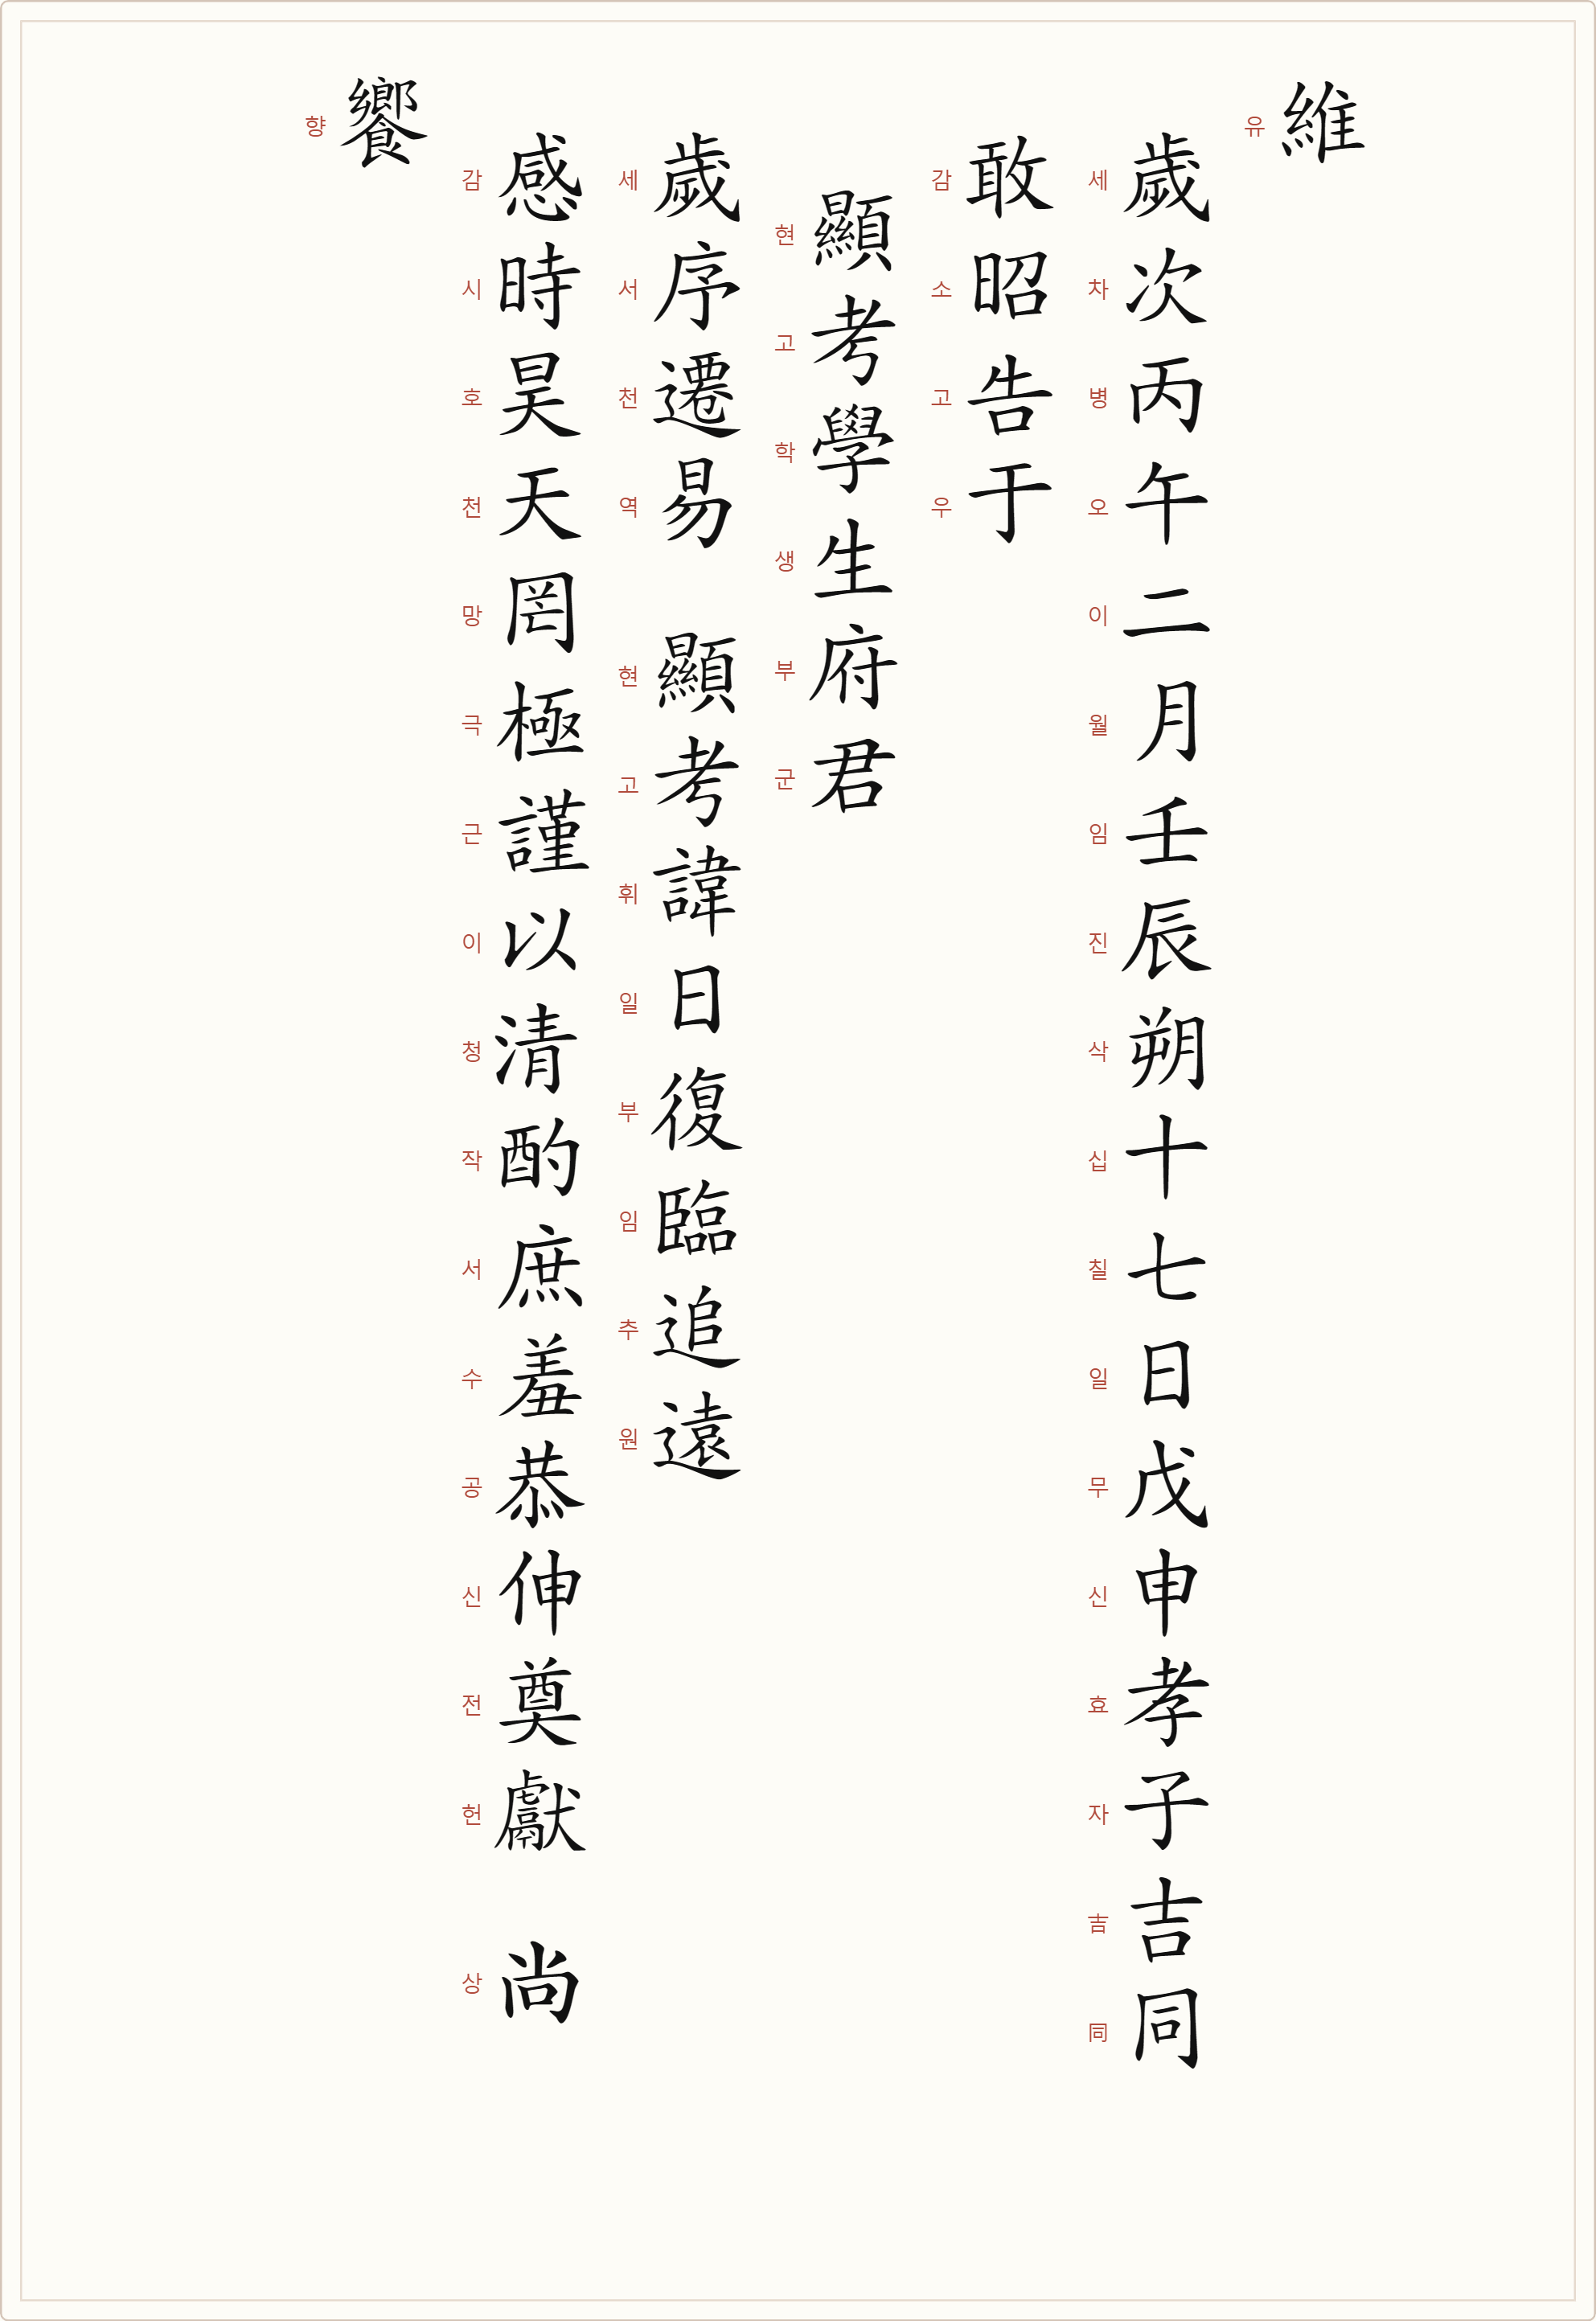 維
유
歲次丙午二月壬辰朔十七日戊申孝子吉同
세차병오이월임진삭십칠일무신효자吉同
敢昭告于
감소고우
顯考學生府君
현고학생부군
歲序遷易 顯考諱日復臨追遠
세서천역 현고휘일부임추원
感時昊天罔極謹以清酌庶羞恭伸奠獻 尚
감시호천망극근이청작서수공신전헌 상
饗
향